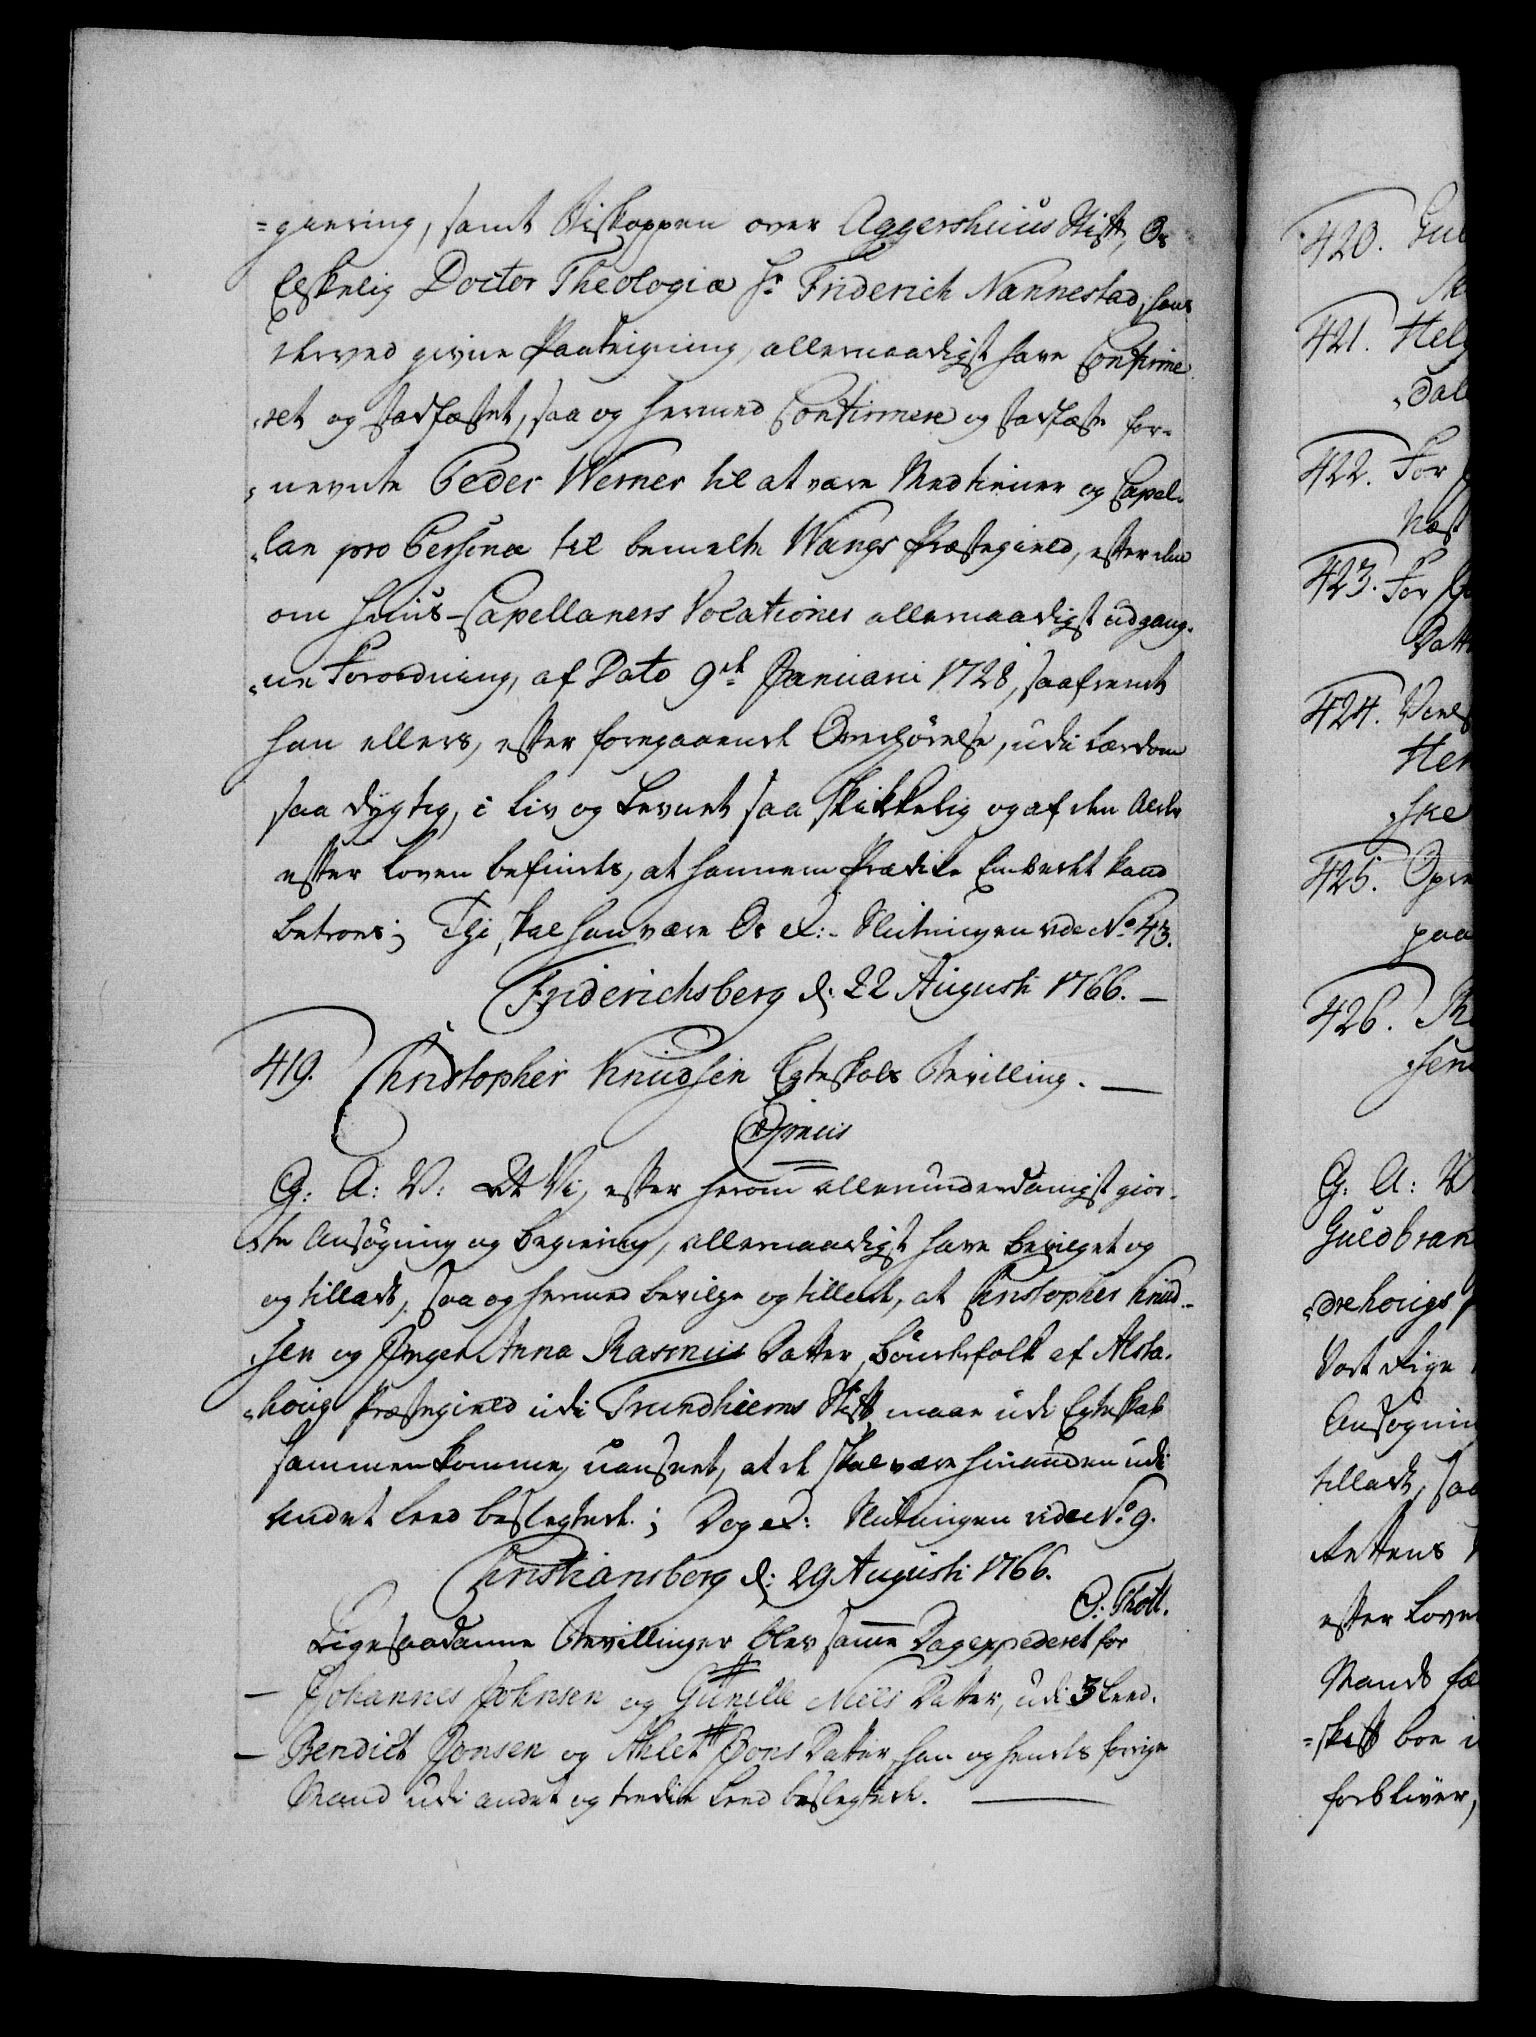 =giæring, samt Biskoppen over Aggershuus Stift, Os
Elskelig Doctor Theologiæ Hr Friderich Nannestad, hans
derved givne Paategning, allernaadigst have Confirme
"ret og stadfæstet, saa og hermed Confirmere og stadfæste for-
"nevnte Peder Werner til at være Medtiener og Capel-
"lan pro Persona til bemelte Wangs Præstegield, efter den
om Huus-Capellaners Vocationer allernaadigst udgang-
"ne Forordning, af Dato 9de Januarii 1728, saafremt
han ellers, efter foregaaende Overhørelse, udi Lærdom
saa dygtig, i Liv og Levnet saa skikkelig og af den Alder
efter Loven befindes, at hannem Prædike Embedet kand
betroes; Thi skal han være Os &: Slutningen vide No 43.
Friderichsberg d: 22 Augusti 1766. —
419. Christopher Knudsen Egteskabs Bevilling. —
Gratis
C: A: V: At Vi, efter herom allerunderdanigst gior-
"te Ansøgning og Begiering, allernaadigst have bevilget og
og tilladt, saa og hermed bevilge og tillade, at Christopher Knud-
"sen og Inger Anna Rasmus Datter, Bøndefolk af Alsta-
"houg Præstegield udi Trundhiems Stift, maae udi Egteskab
sammenkomme, uanseet, at de skal være hinanden udi
andet Leed beslegtede; Dog &: Slutningen vide No 9.
Christiansberg d: 29 Augusti 1766.
O: Thott.
Ligesaadanne Bevillinger blev samme Dag expederet for
— Johannes Johnsen og Gunille Niels Datter, udi 3 Leed.
— Bendict Jonsen og Ahlet Jons Datter, han og hendes forrige
Mand udi andet og tredie Leed beslegtede. —
420. Gul
421. Hel
"dal
422. For
Næst
423. For
Datt
424.
Hen
ske
425. Opre
paa
426.
sen
C: A: V
Guldbran
"drehougs
Vort Rige
Ansøgnin
tilladt, saa
Rettens
efter Love
Mands
=skift boe i
forbliver,